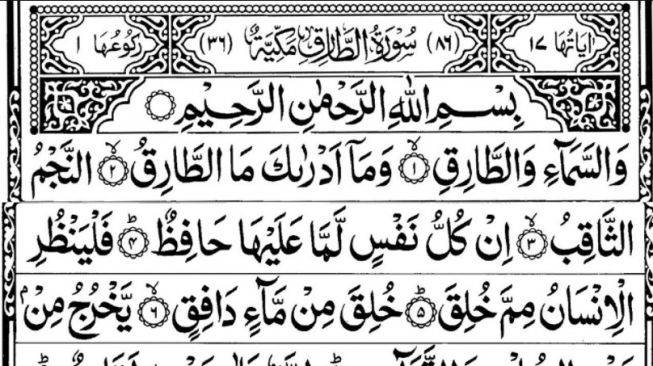 اٰیَاتُهَا ١٧ (٨٦) سُوْرَةُ الطَّارِقِ مَكِّیَّةٌ (٣٦) رُكُوْعُهَا ١
بِسْمِ اللّٰهِ الرَّحْمٰنِ الرَّحِیْمِ
وَالسَّمَآءِ وَالطَّارِقِ ۙ﴿١﴾ وَمَاۤ اَدْرٰىكَ مَا الطَّارِقُ ۙ﴿٢﴾ النَّجْمُ
الثَّاقِبُ ۙ﴿٣﴾ اِنْ كُلُّ نَفْسٍ لَّمَّا عَلَیْهَا حَافِظٌ ؕ﴿٤﴾ فَلْیَنْظُرِ
الْاِنْسَانُ مِمَّ خُلِقَ ؕ﴿٥﴾ خُلِقَ مِنْ مَّآءٍ دَافِقٍ ۙ﴿٦﴾ یَّخْرُجُ مِنْۢ